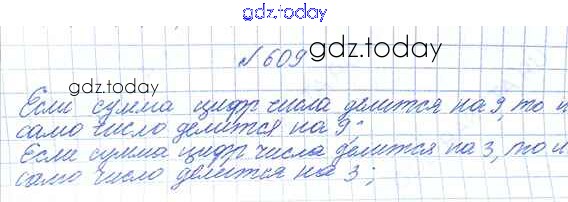 gdz.today
№609 gdz.today
gdz.today
Если сумма цифр числа делится на 9, то и
само число делится на 9;
Если сумма цифр числа делится на 3, то и
само число делится на 3;